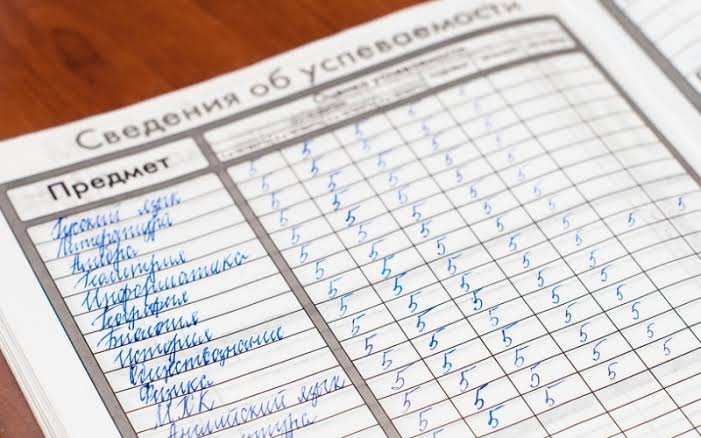 Сведения об успеваемости
Предмет
Русский язык 5 5 5 5 5
Литература 5 5 5 5 5
Алгебра 5 5 5 5 5
Геометрия 5 5 5 5 5
Информатика 5 5 5 5 5
География 5 5 5 5 5
Биология 5 5 5 5 5
История 5 5 5 5 5
Обществознание 5 5 5 5 5
Физика 5 5 5 5 5
МХК 5 5 5 5 5
Английский язык 5 5 5 5 5